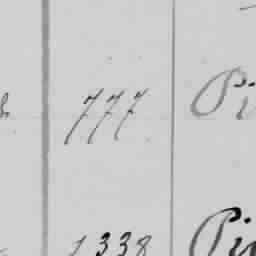 777 Pi
1338 Pi